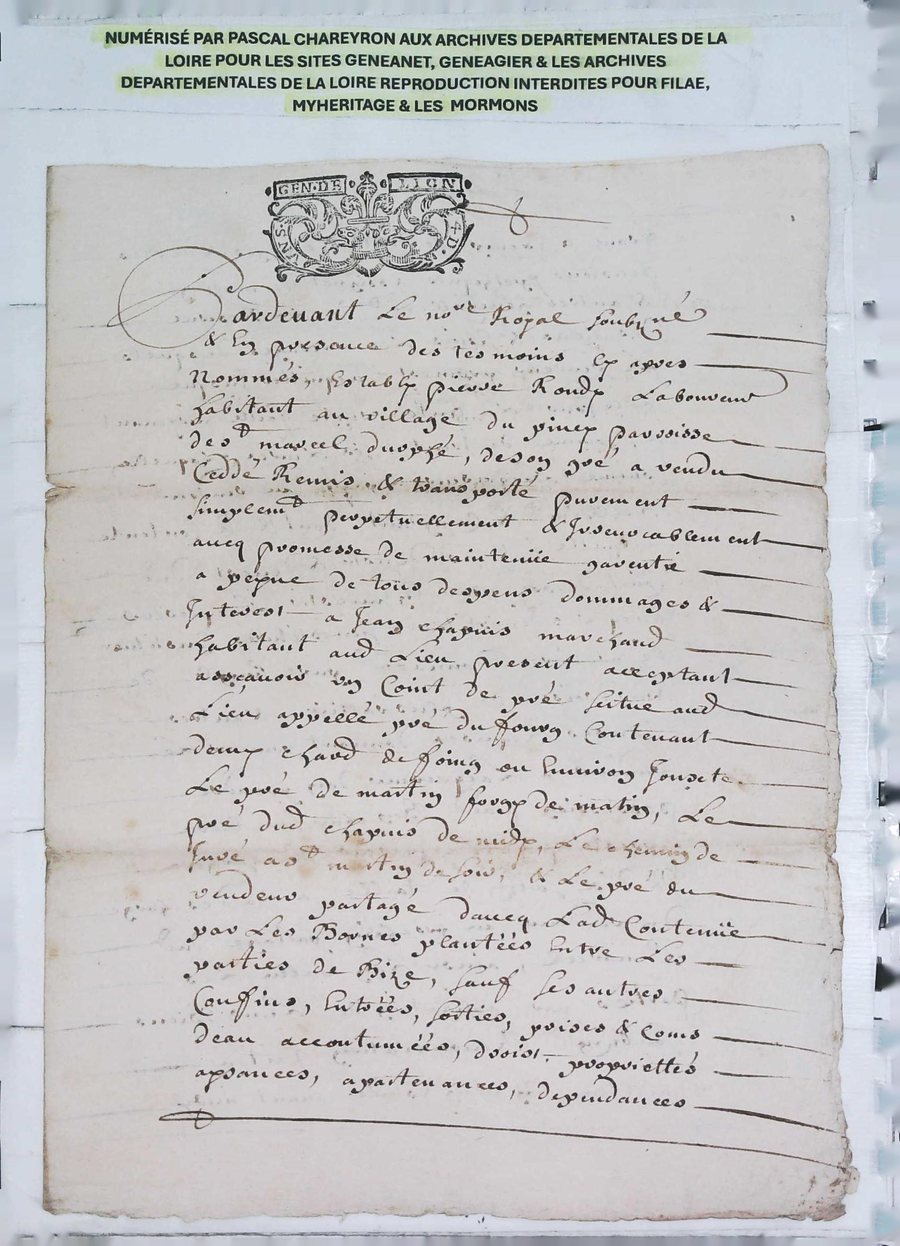 NUMÉRISÉ PAR PASCAL CHAREYRON AUX ARCHIVES DEPARTEMENTALES DE LA
LOIRE POUR LES SITES GENEANET, GENEAGIER & LES ARCHIVES
DEPARTEMENTALES DE LA LOIRE REPRODUCTION INTERDITES POUR FILAE,
MYHERITAGE & LES MORMONS
GEN·DE LION
VN·S· 4·D·
Pardevant Le no.re Royal soubzné
& En presence des tesmoins cy apres
Nommés, Estably pierre Rondy Laboureur
habitant au village du piney parroisse
de s.t marcel durphé, de son gré a vendu
Ceddé Remis & transporté purement
simplem.t perpetuellement & Irrevocablement
aucq promesse de maintenüe garentie
a peyne de tous despens dommages &
Interest a Jean chapuis marchand
habitant aud Lieu present acceptant
asscavoir un Coint de pré scitué aud
Lieu appellé pré du fourg Contenant
deux chard de foing ou Environ Jouxte
Le pré de martin de matin, Le
pré dud chapuis de midy, Le chemin de
Juré a s.t martin de soir, & Le pré du
vendeur partagé daucq Lad Contenüe
par Les Bornes plantées Entre Les
parties de Bize, sauf ses autres
Confins, Entrées, sorties, prises & Cours
deau accoutumées, droist proprietés
aysances, apartenances, dependances